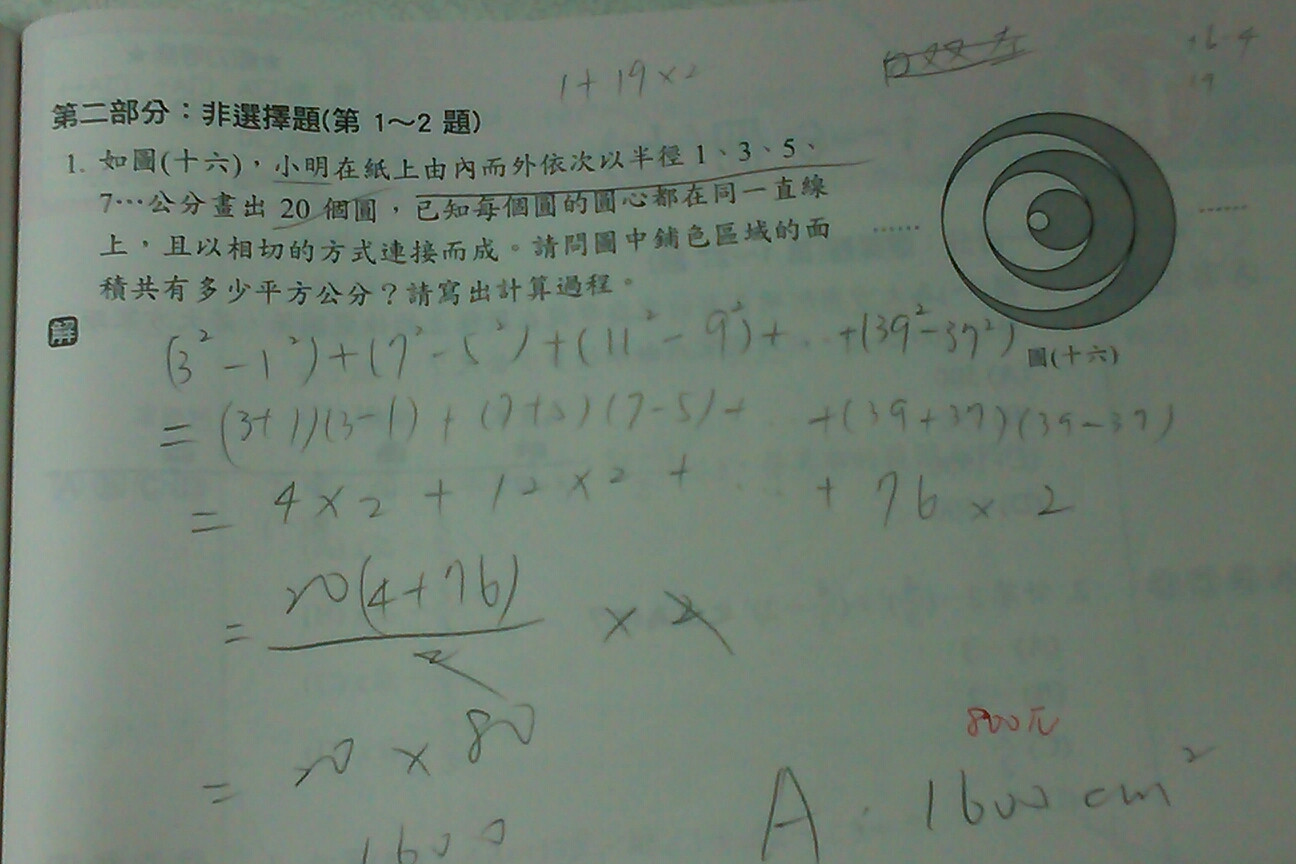 1+19×2
16 4
19
第二部分：非選擇題(第 1～2 題)
1. 如圖(十六)，小明在紙上由內而外依次以半徑 1、3、5、
7…公分畫出 20 個圓，已知每個圓的圓心都在同一直線
上，且以相切的方式連接而成。請問圖中鋪色區域的面
積共有多少平方公分？請寫出計算過程。
……
……
圖(十六)
解
(3²-1²)+(7²-5²)+(11²-9²)+...+(39²-37²)
=(3+1)(3-1)+(7+5)(7-5)+...+(39+37)(39-37)
=4×2+12×2+...+76×2
=20(4+76)/2×2
=20×80
1600
800π
A:1600 cm²